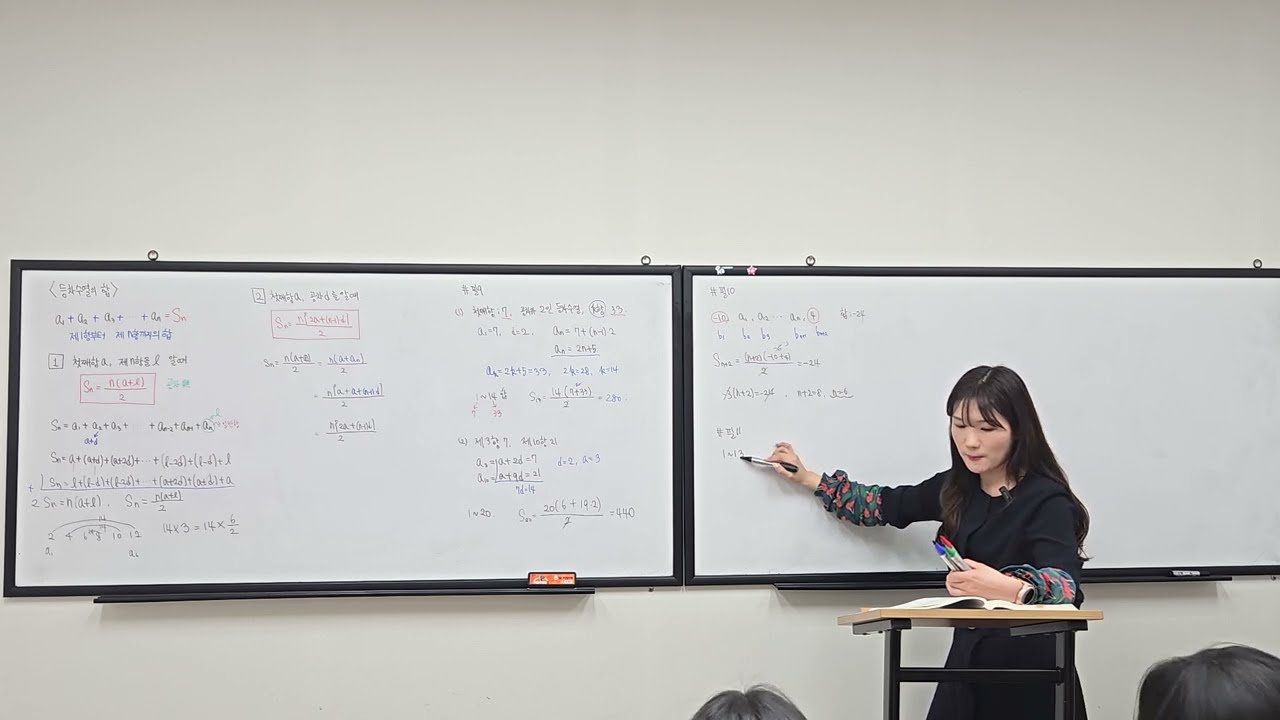 〈등차수열의 합〉
a₁ + a₂ + a₃ + ‥ + aₙ = Sₙ
제1항부터 제n항까지의 합
1 첫째항 a, 제n항을 l 알때
Sₙ = n(a+l)/2
Sₙ = a₁ + a₂ + a₃ + ‥ + aₙ₋₂ + aₙ₋₁ + aₙ
a+d
Sₙ = a + (a+d) + (a+2d) + ‥ + (l-2d) + (l-d) + l
+ ) Sₙ = l + (l-d) + (l-2d) + ‥ + (a+2d) + (a+d) + a
2Sₙ = n(a+l). Sₙ = n(a+l)/2
14
2 4 6 8 10 12
14×3 = 14×6/2
a₁ a₆
2 첫째항 a, 공차 d를 알때
Sₙ = n{2a+(n-1)d}/2
Sₙ = n(a+l)/2 = n(a+aₙ)/2
= n{a+a+(n-1)d}/2
= n{2a+(n-1)d}/2
#필9
(1) 첫째항:7, 공차 2인 등차수열, 33.
a₁=7, d=2, aₙ = 7+(n-1)·2
aₙ = 2n+5
aₖ = 2k+5 = 33, 2k=28, k=14
1~14 합 S₁₄ = 14(7+33)/2 = 280.
7 33
(2) 제3항 7, 제10항 21
a₃ = a+2d = 7 d=2, a=3
a₁₀ = a+9d = 21
7d=14
1~20. S₂₀ = 20(6+19·2)/2 = 440
#필10
-10 a₁, a₂ ‥ aₙ, 4 합:-24
b₁ b₂ b₃ bₙ₊₁ bₙ₊₂
Sₙ₊₂ = (n+2)(-10+4)/2 = -24
-3(n+2) = -24, n+2=8, n=6
#필11
1~13